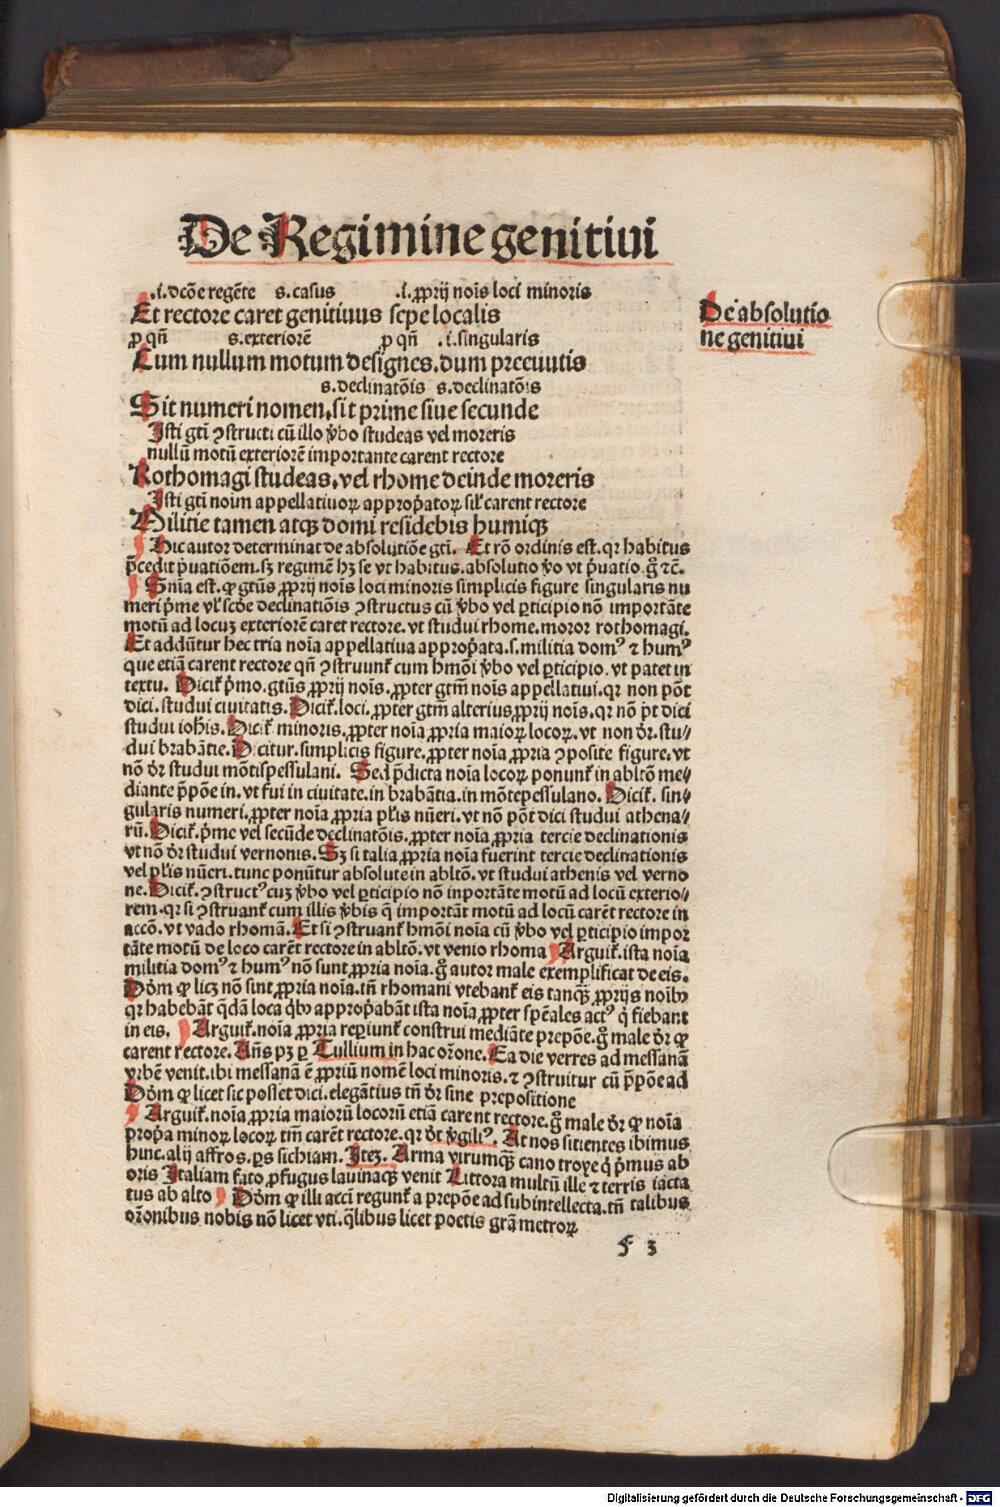 De Regimine genitiui
.i. dcōe regēte s. casus .i. ꝓprij noīs loci minoris
Et rectore caret genitiuus sepe localis
De absolutio
ne genitiui
ꝓ qn̄ s. exteriorē ꝓ qn̄ .i. singularis
Cum nullum motum designes. dum preeuutis
s. declinatōis s. declinatōis
Sit numeri nomen. sit prime siue secunde
Isti gtī ꝯstructi cū illo v̄bo studeas vel moreris
nullū motū exteriorē importante carent rectore
Rothomagi studeas. vel rhome deinde moreris
Isti gtī noīm appellatiuoꝝ appropˀatoꝝ silˀr carent rectore
Militie tamen atqꝫ domi residebis humiqꝫ
Hic autor determinat de absolutiōe gtī. Et rō ordinis est. qꝛ habitus
p̄cedit pˀuatiōem. sꝫ regimē hꝫ se vt habitus. absolutio v̄o vt pˀuatio. gͦ ⁊c̄.
Snīa est. ꝙ gtūs ꝓprij noīs loci minoris simplicis figure singularis nu
meri pˀme vlˀ scd̄e declinatiōis ꝯstructus cū v̄bo vel ꝑticipio nō importāte
motū ad locuꝫ exteriorē caret rectore. vt studui rhome. moror rothomagi.
Et addūtur hec tria noīa appellatiua appropˀata. s. militia domꝰ ⁊ humꝰ
que etiā carent rectore qn̄ ꝯstruunt᷑ cum hmōi v̄bo vel ꝑticipio. vt patet in
textu. Dicit᷑ pˀmo. gtūs ꝓprij noīs. ꝓpter gtm̄ noīs appellatiui. qꝛ non pōt
dici. studui ciuitatis. Dicit᷑. loci. ꝓpter gtm̄ alterius ꝓprij noīs. qꝛ nō pōt dici
studui ioh̄is. Dicit᷑ minoris. ꝓpter noīa ꝓpria maioꝝ locoꝝ. vt non dr̄. stu⸗
dui brabātie. Dicitur. simplicis figure. ꝓpter noīa ꝓpria ꝯposite figure. vt
nō dr̄ studui mōtispessulani. Sed p̄dicta noīa locoꝝ ponunt᷑ in abltō me⸗
diante p̄pōe in. vt fui in ciuitate. in brabātia. in mōtepessulano. Dicit᷑. sin⸗
gularis numeri. ꝓpter noīa ꝓpria pl̄is nūeri. vt nō pōt dici studui athena⸗
rū. Dicit᷑. pˀme vel secūde declinatōis. ꝓpter noīa ꝓpria tercie declinationis
vt nō dr̄ studui vernonis. Sꝫ si talia ꝓpria noīa fuerint tercie declinationis
vel pl̄is nūeri. tunc ponūtur absolute in abltō. vt studui athenis vel verno
ne. Dicit᷑. ꝯstructꝰ cuꝫ v̄bo vel ꝑticipio nō inportāte motū ad locū exterio⸗
rem. qꝛ si ꝯstruant᷑ cum illis v̄bis q̄ importāt motū ad locū carēt rectore in
accō. vt vado rhomā. Et si ꝯstruant᷑ hmōi noīa cū v̄bo vel ꝑticipio impor
tāte motū de loco carēt rectore in abltō. vt venio rhoma Arguit᷑. ista noīa
militia domꝰ ⁊ humꝰ nō sunt ꝓpria noīa. gͦ autor male exemplificat de eis.
Dōm ꝙ licꝫ nō sint ꝓpria noīa. tn̄ rhomani vtebant᷑ eis tanqꝫ ꝓprijs noībꝫ
qꝛ habebāt q̄dā loca qˀbꝫ appropˀabāt ista noīa ꝓpter spēales actꝰ qˀ fiebant
in eis. Arguit᷑. noīa ꝓpria reꝑiunt᷑ construi mediāte prepōe. gͦ male dr̄ ꝙ
carent rectore. An̄s pꝫ ꝑ Tullium in hac orōne. Ea die verres ad messanā
vrbē venit. ibi messanā ē ꝓpriū nomē loci minoris. ⁊ ꝯstruitur cū p̄pōe ad
Dōm ꝙ licet sic posset dici. elegātius tn̄ dr̄ sine prepositione
Arguit᷑. noīa ꝓpria maiorū locorū etiā carent rectore. gͦ male dr̄ ꝙ noīa
propˀa minoꝝ locoꝝ tm̄ carēt rectore. qꝛ dt̄ v̄giliꝰ. At nos sitientes ibimus
hinc. alij affros. ꝑs sichiam. Iteꝫ. Arma virumqꝫ cano troye qˀ pˀmus ab
oris Italiam fato ꝓfugus lauinaqꝫ venit Littora multū ille ⁊ terris iacta
tus ab alto Dōm ꝙ illi accī regunt᷑ a prepōe ad subintellecta. tn̄ talibus
orōnibus nobis nō licet vti. qˀlibus licet poetis grā metroꝝ
f 3
Digitalisierung gefördert durch die Deutsche Forschungsgemeinschaft - DFG